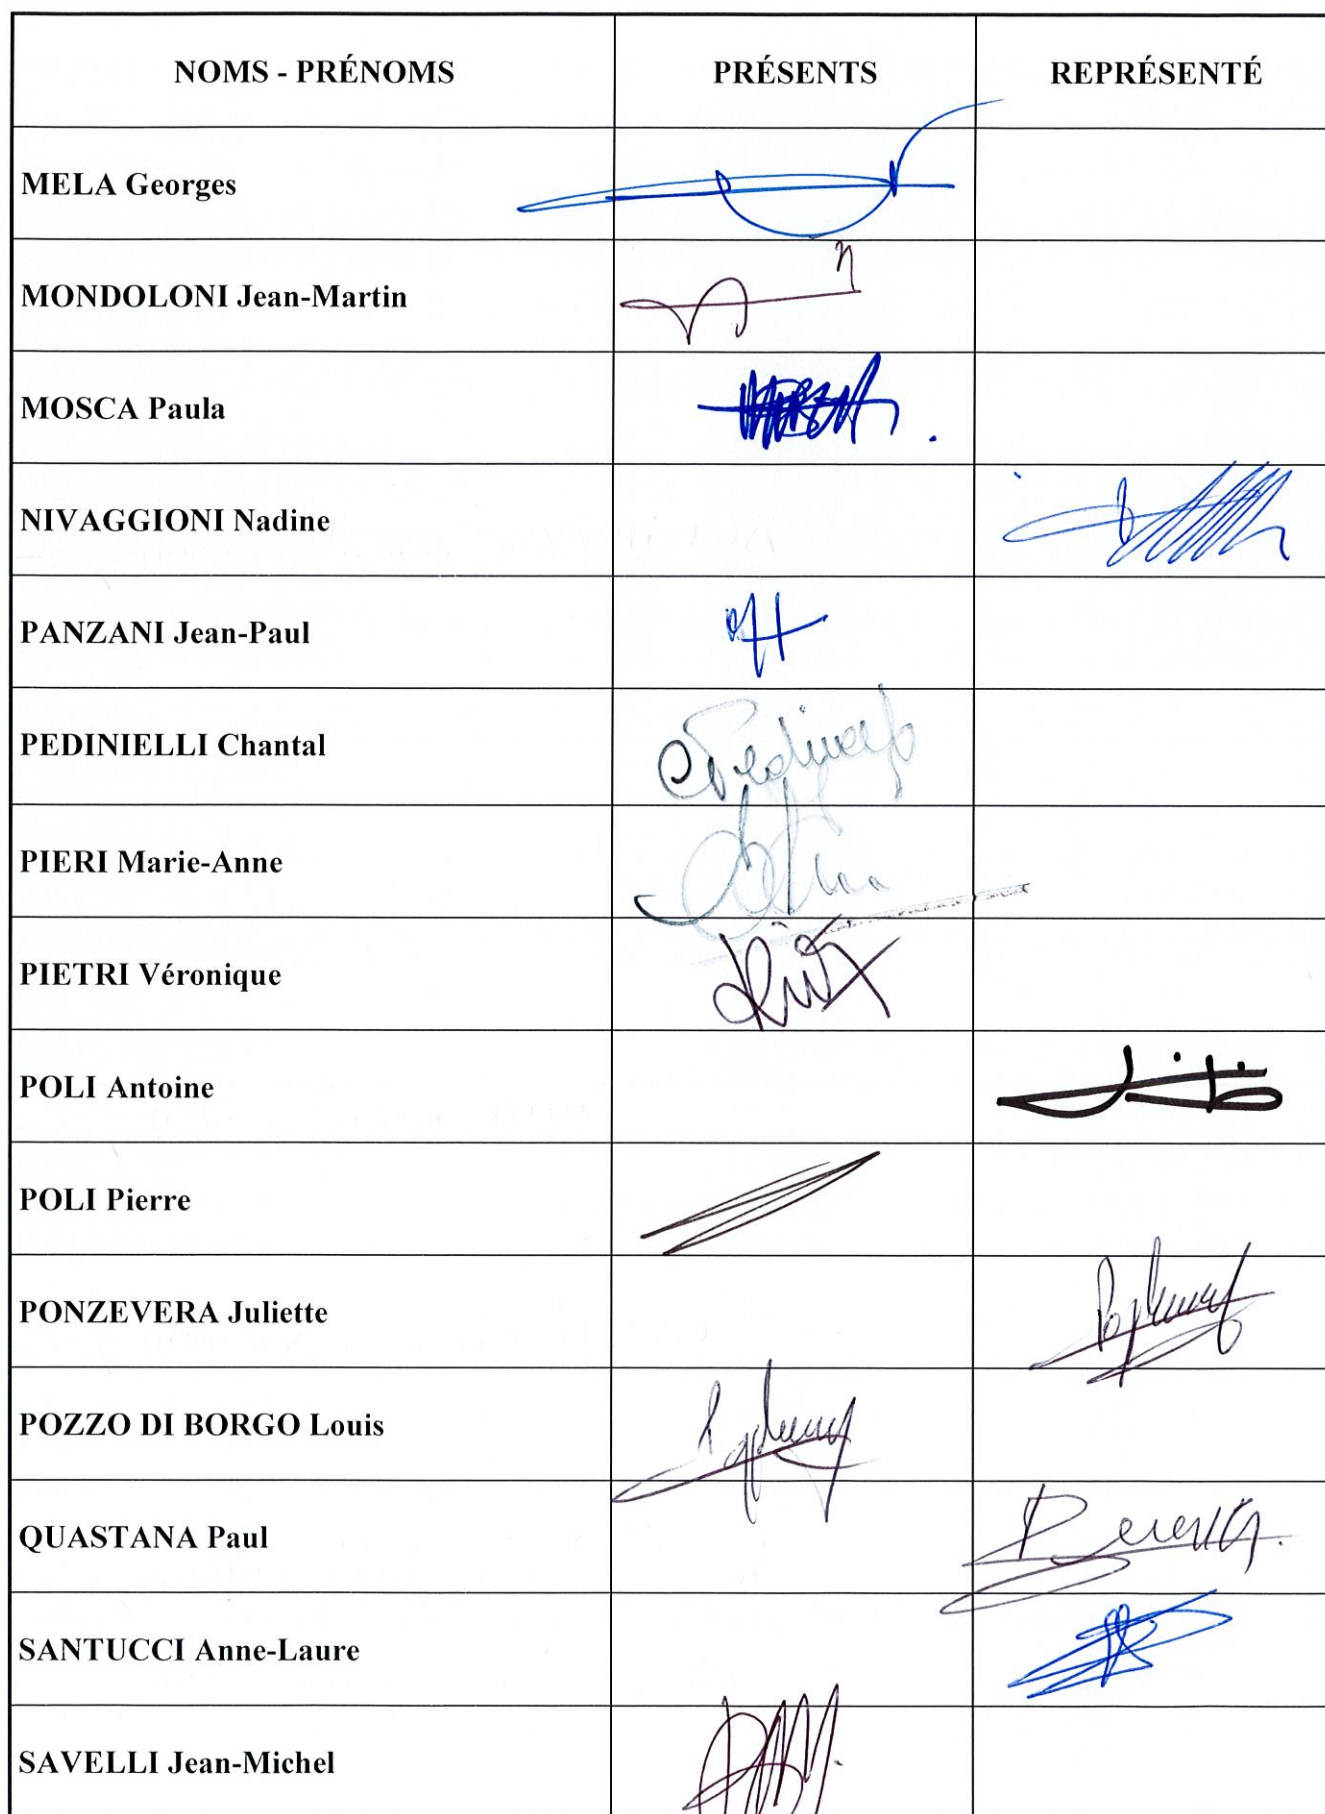 NOMS - PRÉNOMS PRÉSENTS REPRÉSENTÉ
MELA Georges
MONDOLONI Jean-Martin
MOSCA Paula
NIVAGGIONI Nadine
PANZANI Jean-Paul
PEDINIELLI Chantal
PIERI Marie-Anne
PIETRI Véronique
POLI Antoine
POLI Pierre
PONZEVERA Juliette
POZZO DI BORGO Louis
QUASTANA Paul
SANTUCCI Anne-Laure
SAVELLI Jean-Michel